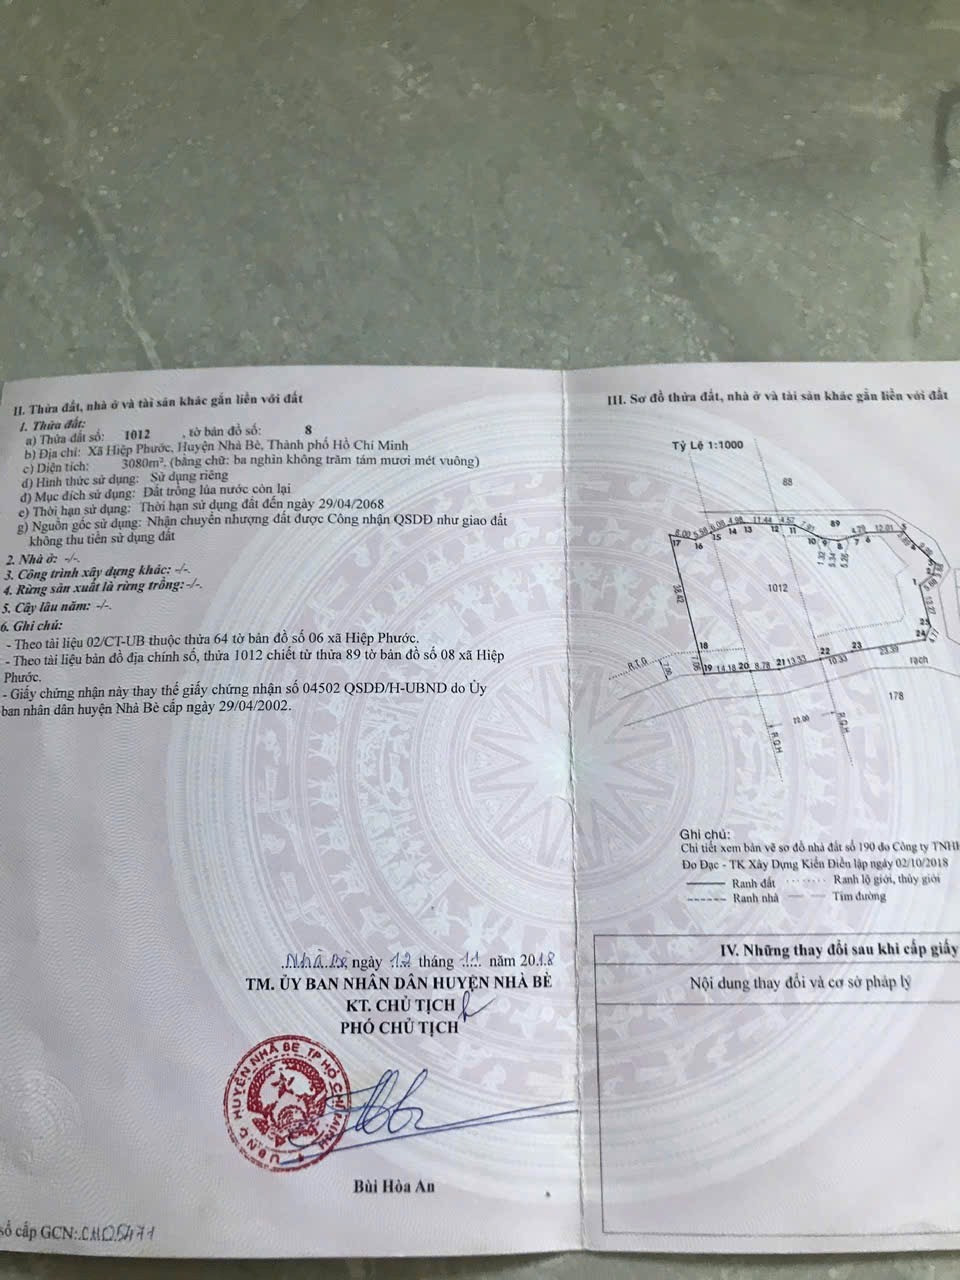 II. Thửa đất, nhà ở và tài sản khác gắn liền với đất
1. Thửa đất:
a) Thửa đất số: 1012 , tờ bản đồ số: 8
b) Địa chỉ: Xã Hiệp Phước, Huyện Nhà Bè, Thành phố Hồ Chí Minh
c) Diện tích: 3080m², (bằng chữ: ba nghìn không trăm tám mươi mét vuông)
d) Hình thức sử dụng: Sử dụng riêng
đ) Mục đích sử dụng: Đất trồng lúa nước còn lại
e) Thời hạn sử dụng: Thời hạn sử dụng đất đến ngày 29/04/2068
g) Nguồn gốc sử dụng: Nhận chuyển nhượng đất được Công nhận QSDĐ như giao đất
không thu tiền sử dụng đất
2. Nhà ở: -/-.
3. Công trình xây dựng khác: -/-.
4. Rừng sản xuất là rừng trồng: -/-.
5. Cây lâu năm: -/-.
6. Ghi chú:
- Theo tài liệu 02/CT-UB thuộc thửa 64 tờ bản đồ số 06 xã Hiệp Phước.
- Theo tài liệu bản đồ địa chính số, thửa 1012 chiết từ thửa 89 tờ bản đồ số 08 xã Hiệp
Phước.
- Giấy chứng nhận này thay thế giấy chứng nhận số 04502 QSDĐ/H-UBND do Ủy
ban nhân dân huyện Nhà Bè cấp ngày 29/04/2002.
Nhà Bè ngày 12 tháng 11 năm 2018
TM. ỦY BAN NHÂN DÂN HUYỆN NHÀ BÈ
KT. CHỦ TỊCH
PHÓ CHỦ TỊCH
U.B.N.D HUYỆN NHÀ BÈ TP HỒ CHÍ MINH
Bùi Hòa An
số cấp GCN: CH05471
III. Sơ đồ thửa đất, nhà ở và tài sản khác gắn liền với đất
Tỷ Lệ 1:1000
88
89
8.00 5.58 6.08 4.98 11.44 4.57 4.79 12.01
17 16 15 14 13 12 11 10 9 8 7 6 5
1.32 5.34
1012
38.42
1
13.27
25
24
18
7.06
R.T.G
7.86
19 14.18 20 8.78 21 13.53 22 10.33 23 23.39
rạch
178
20.00
R.Q.H
R.Q.H
Ghi chú:
Chi tiết xem bản vẽ sơ đồ nhà đất số 190 do Công ty TNHH
Đo Đạc - TK Xây Dựng Kiến Điền lập ngày 02/10/2018
Ranh đất Ranh lộ giới, thủy giới
Ranh nhà Tim đường
IV. Những thay đổi sau khi cấp giấy
Nội dung thay đổi và cơ sở pháp lý